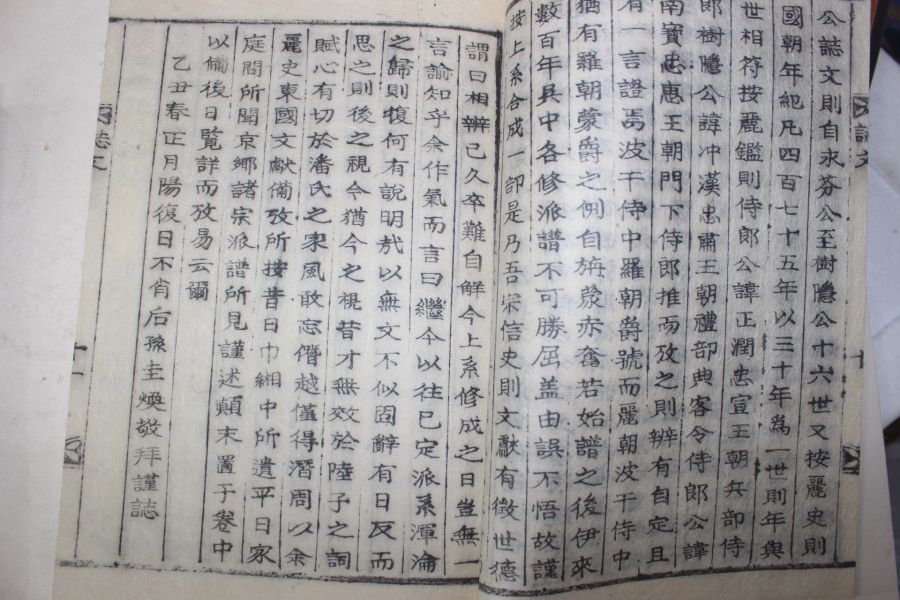 公誌文則自求芬公至樹隱公十六世又按麗史則
國朝年紀凡四百七十五年以三十年為一世則年與
世相符按麗鑑則侍郎公諱正潤忠宣王朝兵部侍
郎樹隱公諱冲漢忠肅王朝禮部典客令侍郎公諱
南寶忠惠王朝門下侍郎推而攷之則辨有自定且
有一言證焉波干侍中羅朝爵號而麗朝波干侍中
猶有羅朝蒙爵之例自旃蒙赤奮若始譜之後伊來
數百年兵中各修派譜不可勝屈盖由誤不悟故謹
按上系合成一部是乃吾宋信史則文獻有徵世德
謂曰相辨已久卒難自解今上系修成之日豈無一
言諭知乎余作氣而言曰繼今以往已定派系渾淪
之歸則復何有說明㢤以無文不似固辭有日反而
思之則後之視今猶今之視昔才無效於陸子之詞
賦心有切於潘氏之家風敢忘僭越僅得潛周以余
麗史東國文獻備攷所按昔日巾緗中所遺平日家
庭間所聞京鄉諸宗派譜所見謹述顛末置于卷中
以備後日覧詳而攷易云爾
乙丑春正月陽復日不肖后孫圭煥敬拜謹誌
誌文
十一
誌文
十